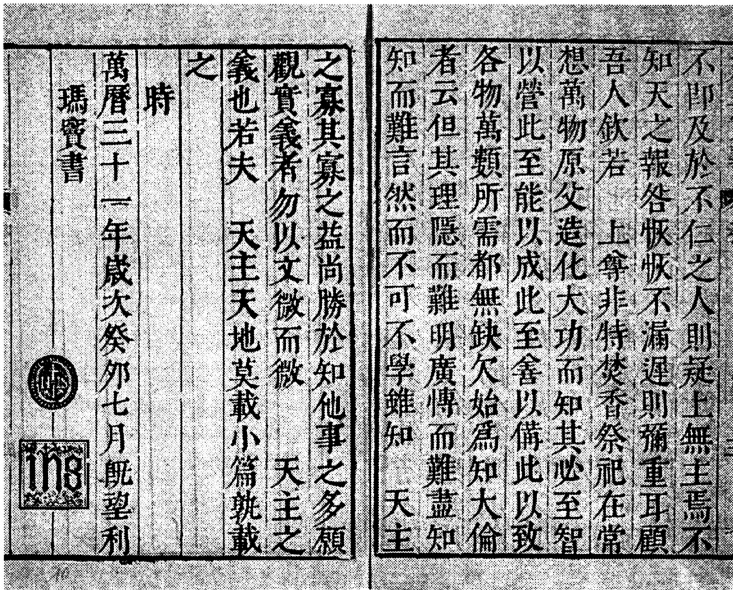 不即及於不仁之人則疑上無主焉不
知天之報咎恢恢不漏遲則彌重耳顧
吾人欽若　上尊非特焚香祭祀在常
想萬物原父造化大功而知其必至智
以營此至能以成此至善以備此以致
各物萬類所需都無缺欠始爲知大倫
者云但其理隱而難明廣博而難盡知
知而難言然而不可不學雖知　天主
之寡其寡之益尚勝於知他事之多願
觀實義者勿以文微而微　天主之
義也若夫　天主天地莫載小篇孰載
之
時
萬曆三十一年歲次癸卯七月既望利
瑪竇書
ihs